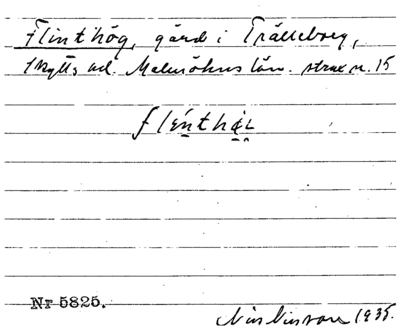 Flinthög, gård i Trälleborg,
Skytts hd. Malmöhus län. strax n. 15
flénthöL
Nr 5825.
Nils Nilsson 1935.